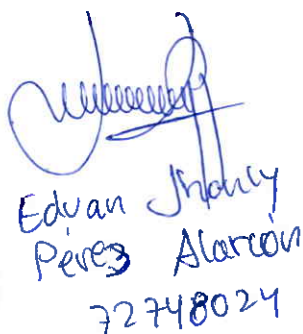 Edvan Jhonly
Pérez Alarcón
72748024